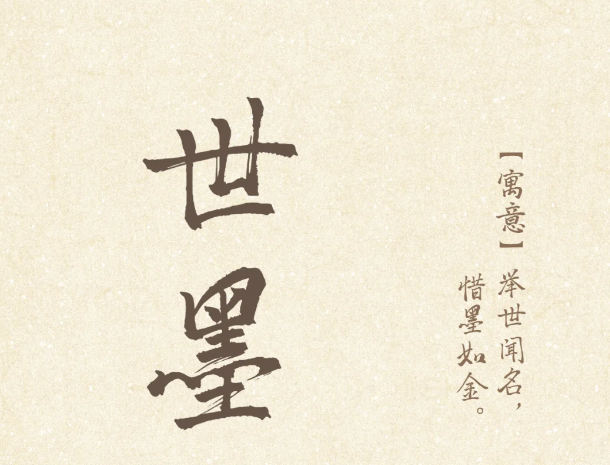 世墨
【寓意】举世闻名，
惜墨如金。